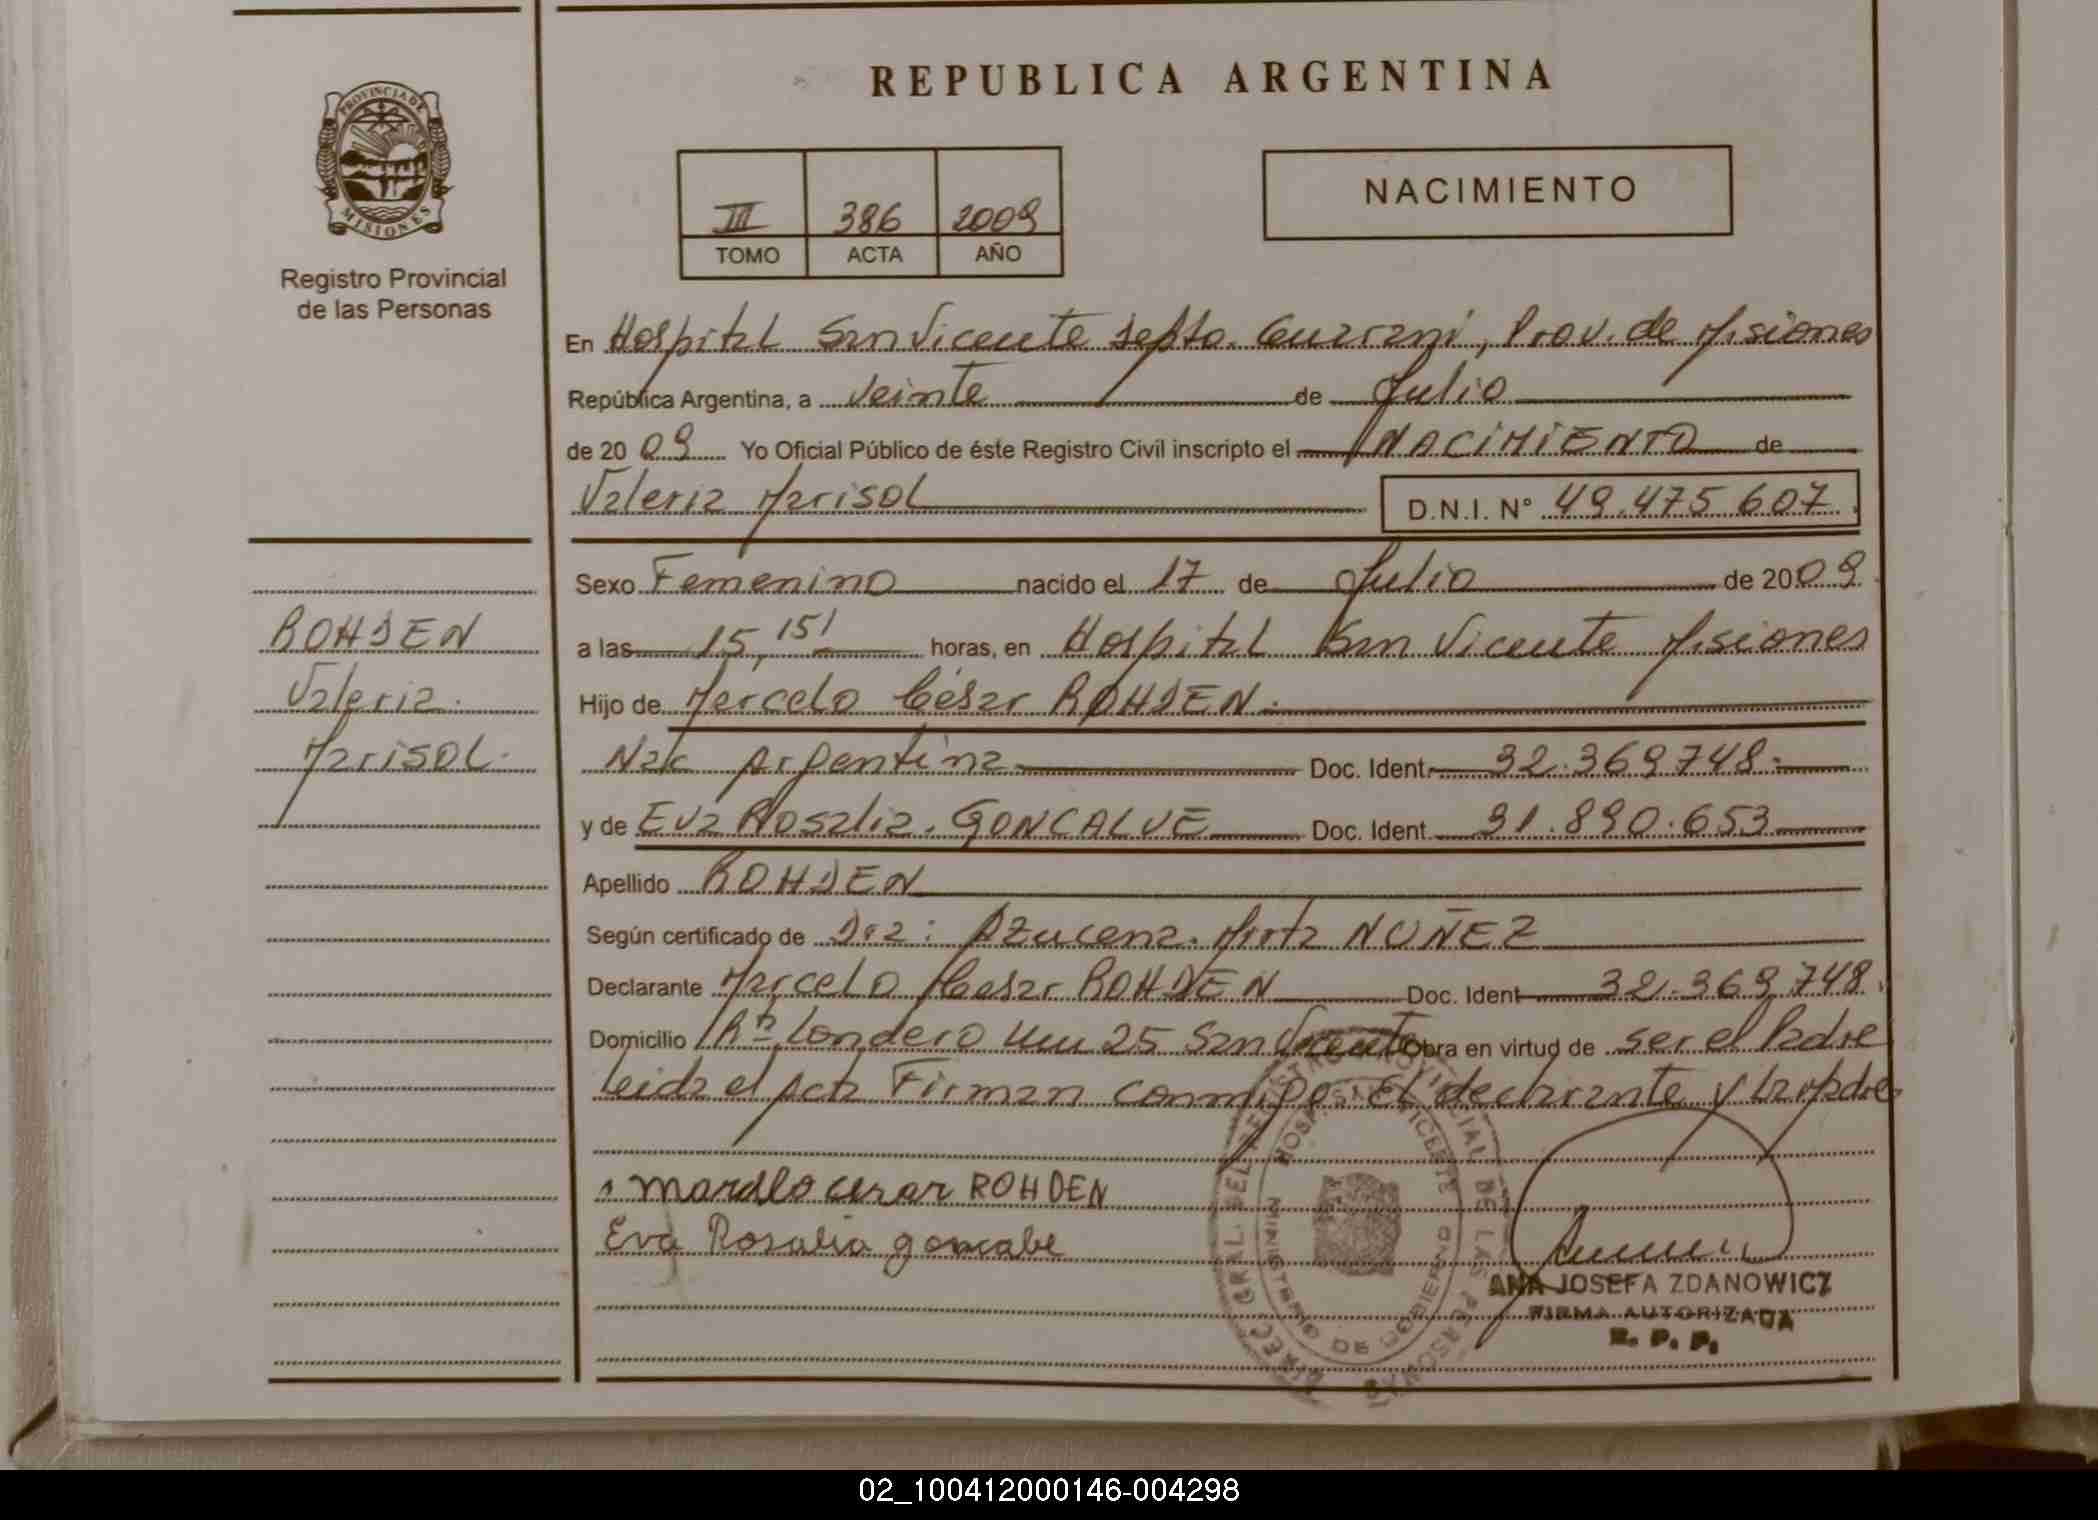 REPUBLICA ARGENTINA
PROVINCIA DE
MISIONES
Registro Provincial
de las Personas
III 386 2009
TOMO ACTA AÑO
NACIMIENTO
En Hospital San Vicente Depto. Guarani, Prov. de Misiones
República Argentina, a Veinte de Julio
de 2009 Yo Oficial Público de éste Registro Civil inscripto el NACIMIENTO de
Valeria Marisol D.N.I. N° 49.475.607
Sexo Femenino nacido el 17 de Julio de 2009
ROHDEN
a las 15,15' horas, en Hospital San Vicente Misiones
Valeria.
Hijo de Marcelo César ROHDEN.
Marisol.
Nac Argentina Doc. Ident. 32.369.748.
y de Eva Rosalia. GONCALVE Doc. Ident. 31.890.653
Apellido ROHDEN
Según certificado de Dra: Azucena. Mirta NUÑEZ
Declarante Marcelo Cesar ROHDEN Doc. Ident 32.369.748.
Domicilio Londero Km 25 San Vicente Obra en virtud de ser el Padre
Leida el Acta Firman conmigo El declarante y la Madre
Marcelo cesar ROHDEN
Eva Rosalia goncalve
DIREC. GRAL. DEL REGISTRO PROVINCIAL DE LAS PERSONAS
HOSP. SAN VICENTE
MINISTERIO DE GOBIERNO
ANA JOSEFA ZDANOWICZ
FIRMA AUTORIZADA
R. P. P.
02_100412000146-004298